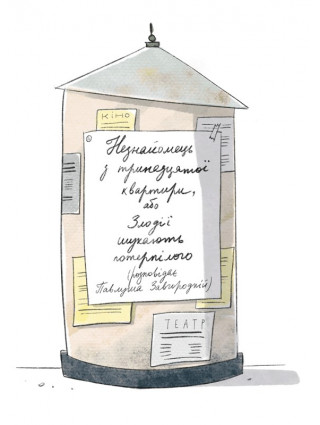 КІНО
Незнайомець
з тринадцятої
квартири,
або
Злодії
шукають
потерпілого
(розповідає
Павлуша Завгородній)
ТЕАТР